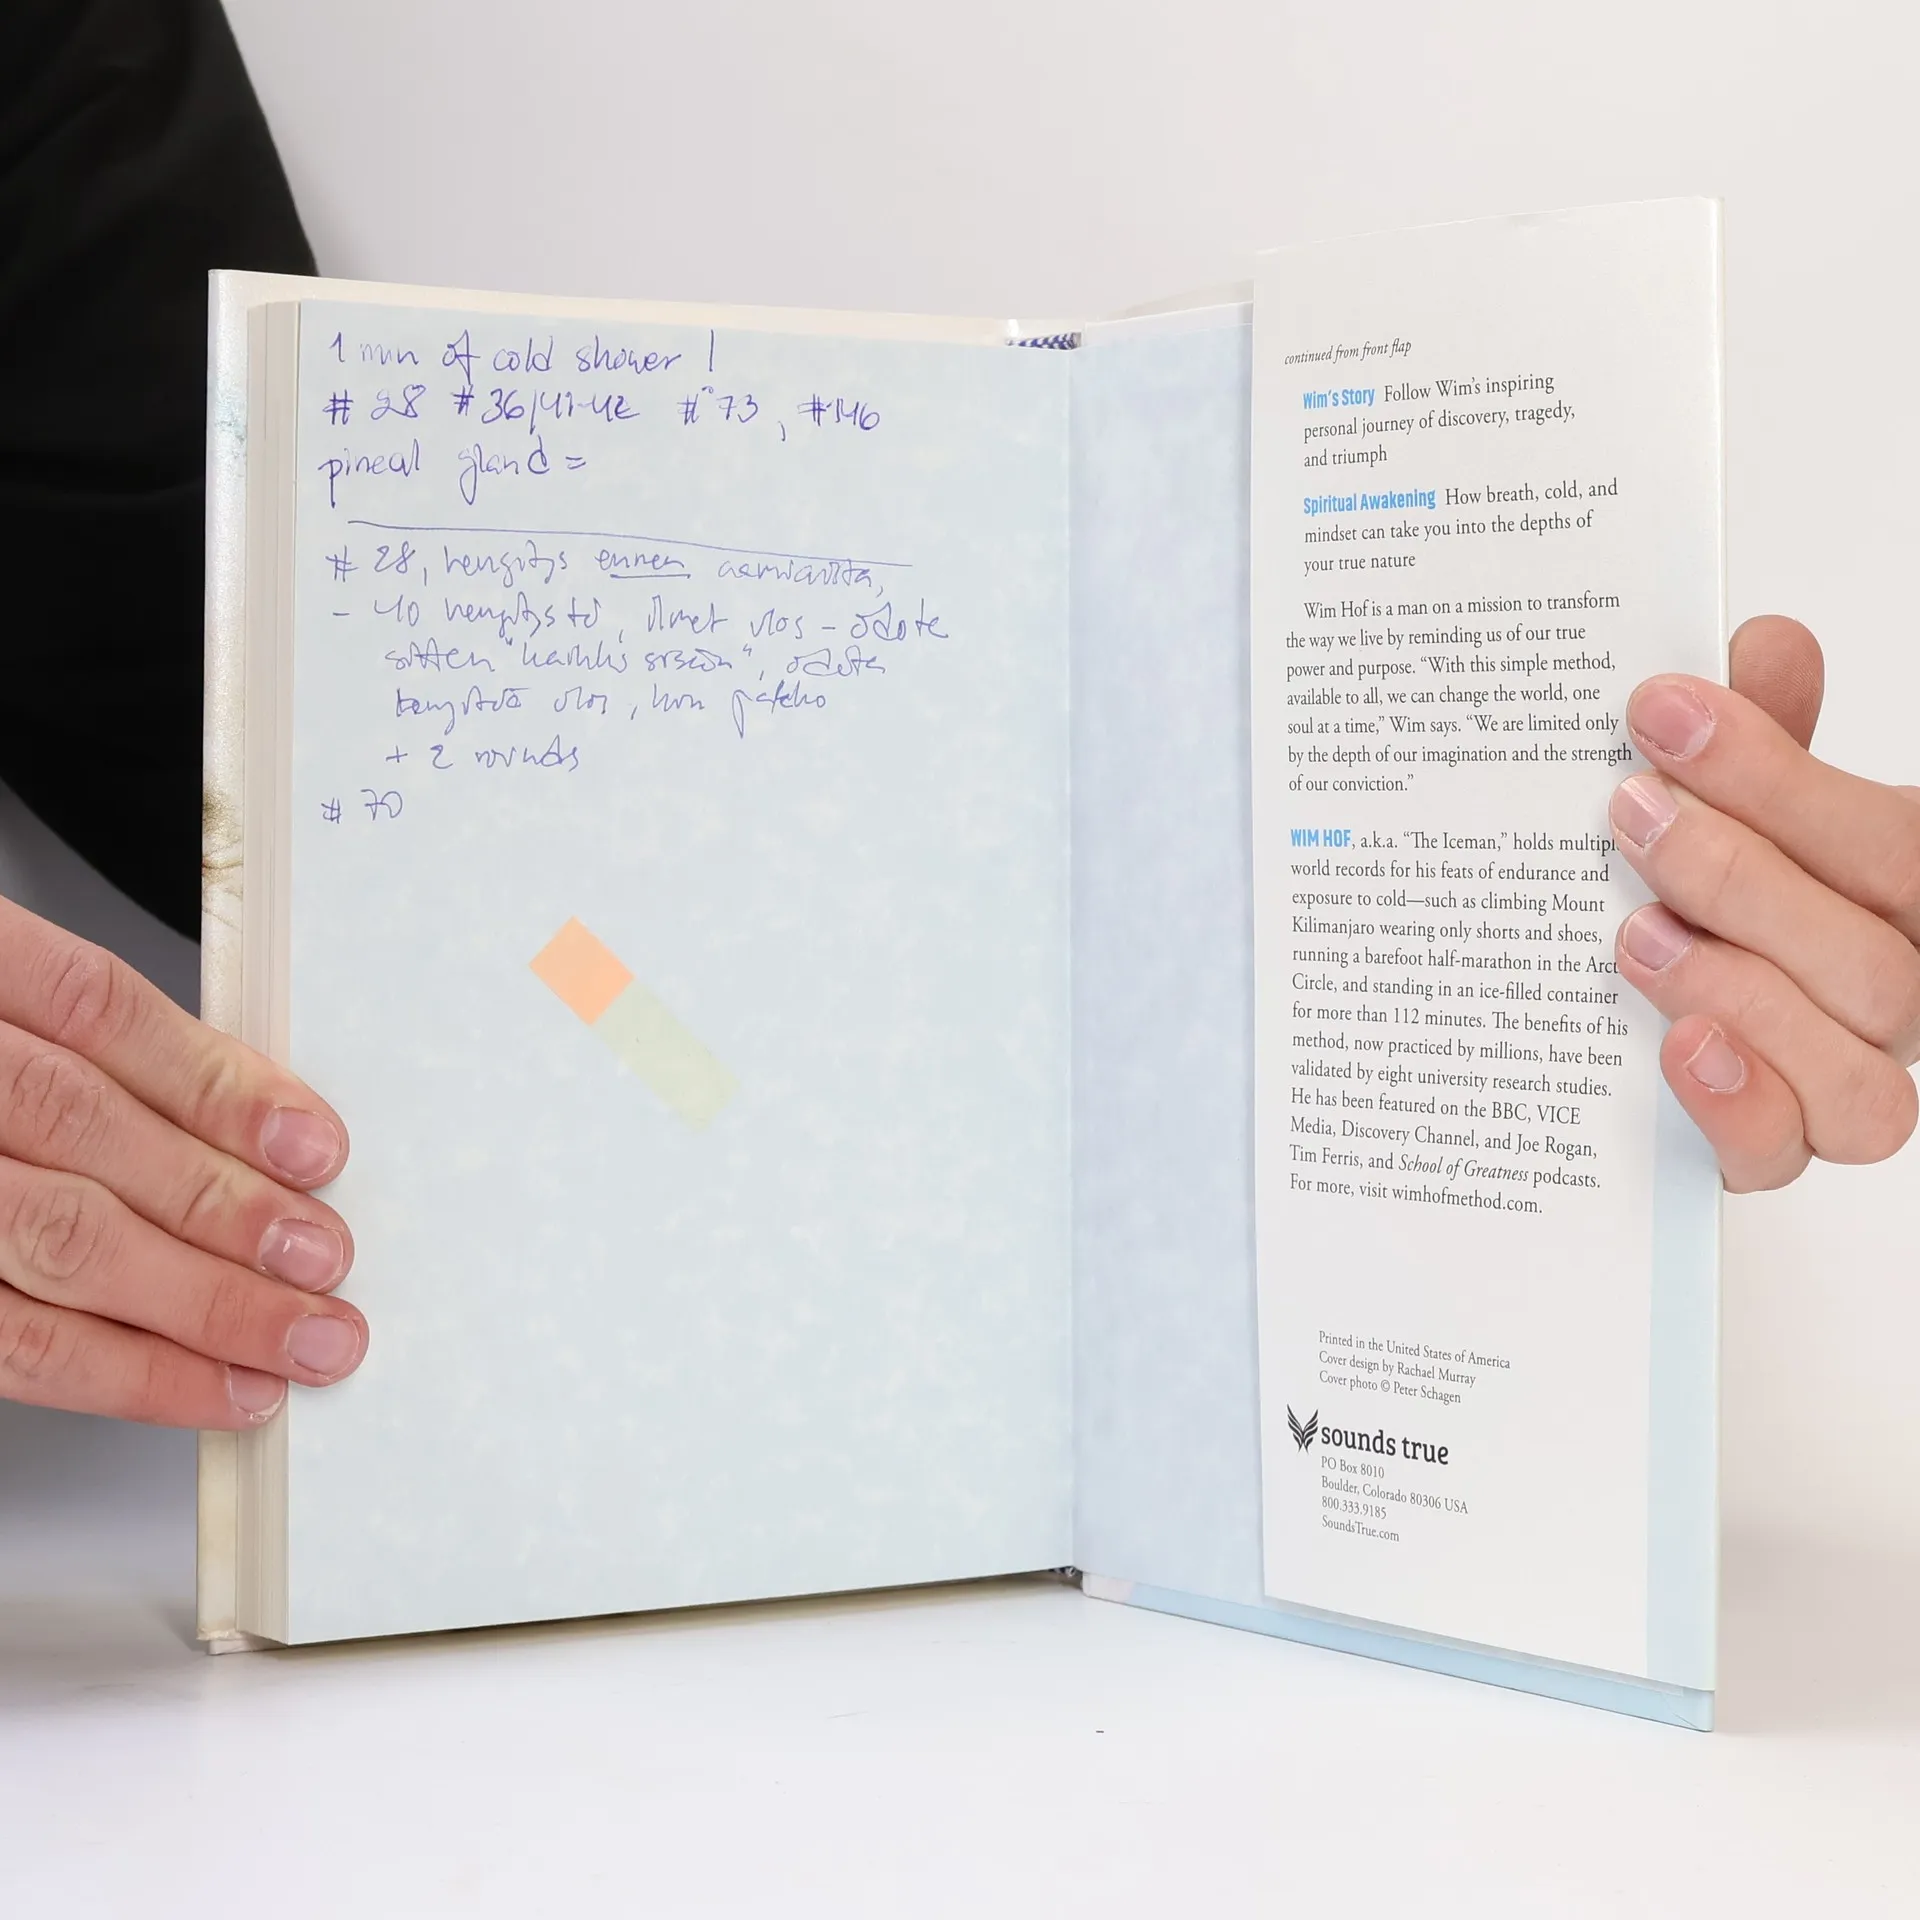 1 min of cold shower !
# 28 # 36/41-42 # 73, #146
pineal gland =
# 28, hengitys ennen aamiaista,
- 40 hengitystä, ilmat ulos - odota
sitten "kaikki sisään", odota
hengitä ulos, kun pakko
+ 2 rounds
# 70
continued from front flap
Wim's Story Follow Wim's inspiring
personal journey of discovery, tragedy,
and triumph
Spiritual Awakening How breath, cold, and
mindset can take you into the depths of
your true nature
Wim Hof is a man on a mission to transform
the way we live by reminding us of our true
power and purpose. “With this simple method,
available to all, we can change the world, one
soul at a time,” Wim says. “We are limited only
by the depth of our imagination and the strength
of our conviction.”
WIM HOF, a.k.a. “The Iceman,” holds multipl
world records for his feats of endurance and
exposure to cold—such as climbing Mount
Kilimanjaro wearing only shorts and shoes,
running a barefoot half-marathon in the Arct
Circle, and standing in an ice-filled container
for more than 112 minutes. The benefits of his
method, now practiced by millions, have been
validated by eight university research studies.
He has been featured on the BBC, VICE
Media, Discovery Channel, and Joe Rogan,
Tim Ferris, and School of Greatness podcasts.
For more, visit wimhofmethod.com.
Printed in the United States of America
Cover design by Rachael Murray
Cover photo © Peter Schagen
sounds true
PO Box 8010
Boulder, Colorado 80306 USA
800.333.9185
SoundsTrue.com